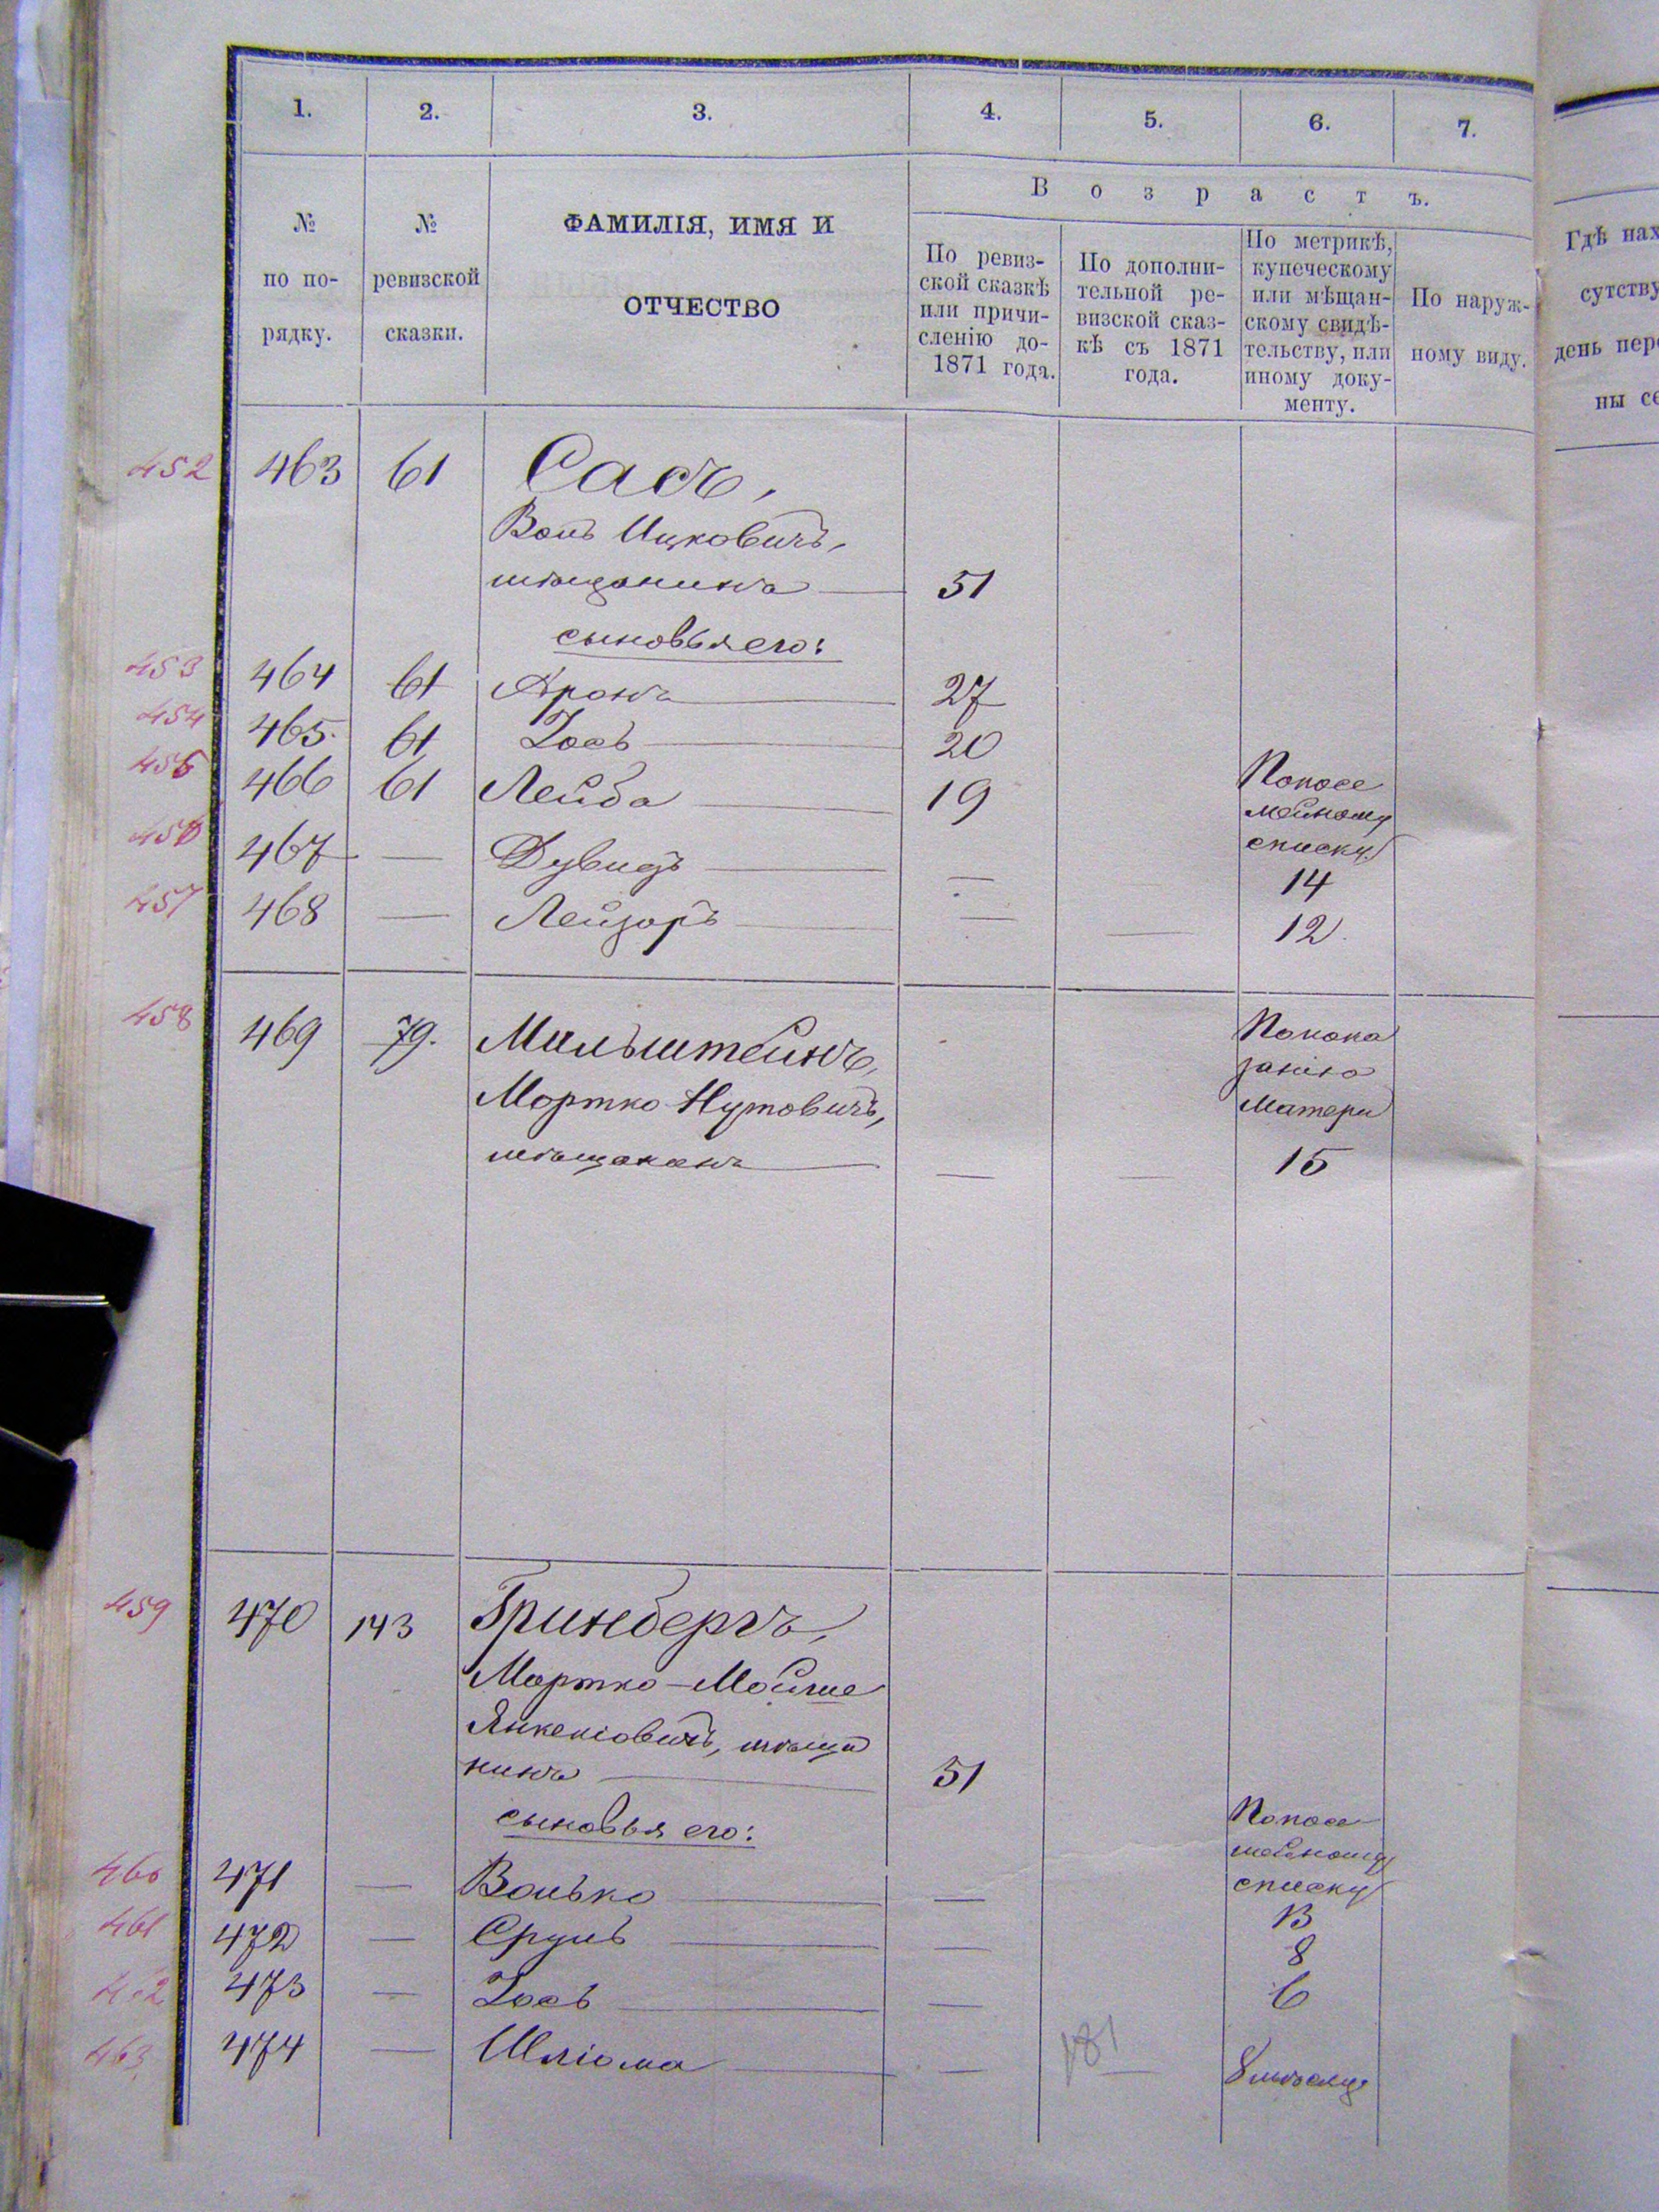 1. 2. 3. 4. 5. 6. 7.
№ по по- рядку.
№ ревизской сказки.
ФАМИЛІЯ, ИМЯ И
ОТЧЕСТВО
Возрастъ.
По ревиз-
ской сказкѣ
или причи-
сленію до-
1871 года.
По дополни-
тельной ре-
визской сказ-
кѣ съ 1871
года.
По метрикѣ,
купеческому
или мѣщан-
скому свидѣ-
тельству, или
иному доку-
менту.
По наруж-
ному виду.
Гдѣ нах
сутству
день пер
ны се
452 463 61 Сасъ,
Воль Ицковичъ,
мѣщанинъ 51
сыновья его:
453 464 61 Аронъ 27
454 465 61 Іось 20
455 466 61 Лейба 19
По посе
мейному
списку
456 467 — Дувидъ — 14
457 468 — Лейзоръ — — 12
458 469 79. Мильштейнъ,
Мортко Нутовичъ,
мѣщанинъ — — 15
По пока
занію
матери
459 470 143 Гринбергъ,
Мортко-Мойше
Янкеліовичъ, мѣща
нинъ 51
сыновья его:
По посе
мейному
списку
460 471 — Волько — 13
461 472 — Сруль — 8
462 473 — Іось — 6
463 474 — Шліома — — 8 мѣсяц.
181